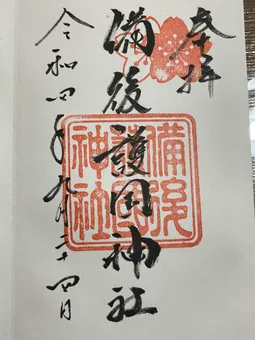 奉拝
備後護国神社
備後
護國
神社
令和四年九月二十四日